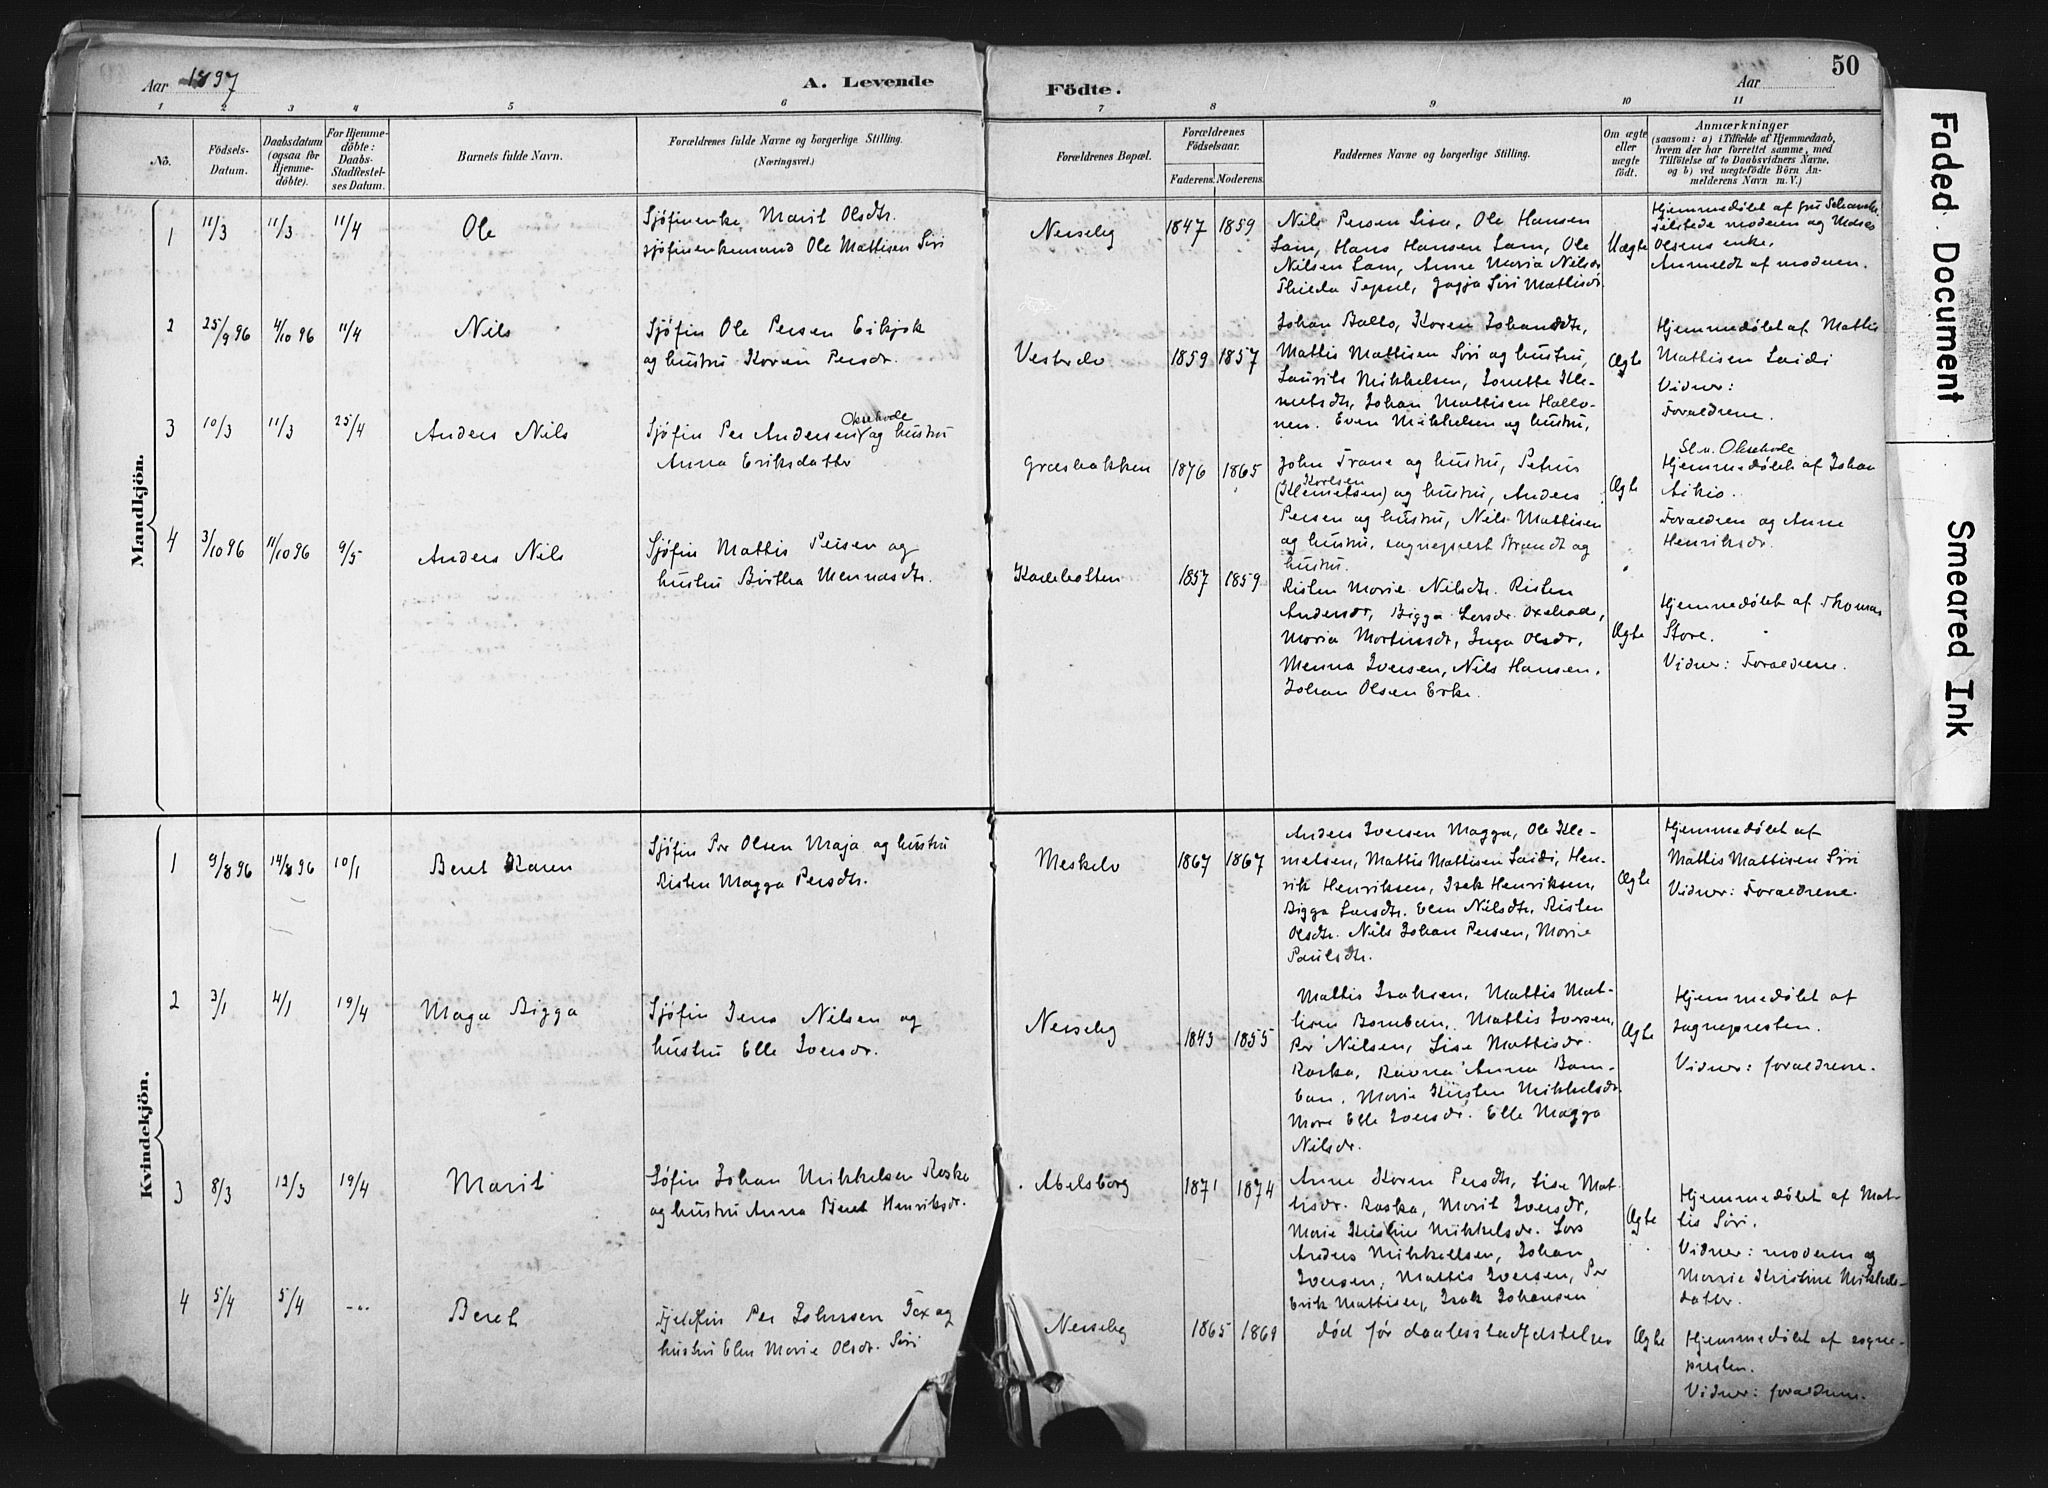 Aar 1897
A. Levende
Födte.
Aar
50
1 2 3 4 5 6 7 8 9 10 11
No.
Födsels-
Datum.
Daabsdatum
(ogsaa for
Hjemme-
döbte).
For Hjemme-
döbte:
Daabs-
Stadfæstel-
ses Datum.
Barnets fulde Navn.
Forældrenes fulde Navne og borgerlige Stilling.
(Næringsvei.)
Forældrenes Bopæl.
Forældrenes
Födselsaar.
Faderens. Moderens.
Faddernes Navne og borgerlige Stilling.
Om ægte
eller
uægte
födt.
Anmærkninger
(saasom: a) i Tilfælde af Hjemmedaab,
hvem der har forrettet samme, med
Tilföielse af to Daabsvidners Navne,
og b) ved uægtefödte Börn An-
melderens Navn m. V.)
Mandkjön.
1 11/3 11/3 11/4 Ole
Sjøfinenke Marit Olsdtr.
sjøfinenkemand Ole Mattisen Siri
Nerselig 1847 1859
Nils Persen Lisa, Ole Hansen
Lam, Hans Hansen Lam, Ole
Nilsen Lam, Anne Maria Nilsdr
Siri Mattisdr.
Uægte
Hjemmedøbt af fru
moderen og
Olsens enke.
Anmeldt af moderen.
2 25/9 96 4/10 96 11/4 Nils
Sjøfin Ole Persen Erikjok
og hustru Karen Persdr.
Vesterelv 1859 1857
Johan Ballo, Karen Johansdtr,
Mattis Mattisen Siri og hustru,
Laurits Mikkelsen, Jonette Kle-
metsdtr, Johan Mattisen Hallo-
nen. Even Mikkelsen og hustru,
Ægte
Hjemmedøbt af Mattis
Mattisen Laidi
Vidner:
Forældrene.
3 10/3 11/3 25/4 Anders Nils
Oksehode
Sjøfin Per Andersen og hustru
Anna Eriksdatter
Græsbakken 1876 1865
John Trane og hustru, Petrus
Karlsen
(Klemetsen) og hustru, Anders
Persen og hustru, Nils Mattisen
og hustru, sogneprest Brandt og
hustru.
Ægte
Sl.n. Oksehode
Hjemmedøbt af Johan
Aikio.
Forældren og Anne
Henriksdr.
4 3/10 96 11/10 96 9/5 Anders Nils
Sjøfin Mattis Persen og
hustru Biritha Mennasdtr.
Karlbotten 1857 1859
Risten Marie Nilsdtr. Risten
Andersdr, Bigga Larsdr. Oxehode,
Maria Mortensdr, Inga Olsdr,
Menna Iversen, Nils Hansen,
Johan Olsen Erke.
Ægte
Hjemmedøbt af Thomas
Store.
Vidner: Forældrene.
Kvindekjön.
1 9/8 96 14/8 96 10/1 Beret Karen
Sjøfin Per Olsen Maja og hustru
Risten Magga Persdtr.
Meskelv 1867 1867
Anders Iversen Magga, Ole Kle-
metsen, Mattis Mattisen Laidi, Hen-
rik Henriksen, Isak Henriksen,
Bigga Larsdtr. Elen Nilsdtr, Risten
Olsdtr. Nils Johan Persen, Marie
Paulsdtr.
Ægte
Hjemmedøbt af
Mattis Mattisen Siri
Vidner: Forældrene.
2 3/1 4/1 19/4 Maga Bigga
Sjøfin Jens Nilsen og
hustru Elle Iversdr.
Nerselig 1843 1855
Mattis Isaksen, Mattis Mat-
tisen Bomban, Mattis Iversen,
Per Nilsen, Lise Mattisdr.
Raska, Ravna Anna Bom-
ban, Marie Kirsten Mikkelsdr.
Mare Elle Iversdr. Elle Magga
Nilsdr.
Ægte
Hjemmedøbt af
sognepresten.
Vidner: forældrene.
3 8/3 12/3 19/4 Marit
Søfin Johan Mikkelsen Raska
og hustru Anna Beret Henriksdr.
Abelsborg 1871 1874
Anne Karen Persdtr, Lise Mat-
tisdr. Raska, Marit Iversdr,
Marie Kirstine Mikkelsdr. Lars
Anders Mikkelsen, Johan
Iversen, Mattis Iversen, Per
Erik Mattisen, Isak Johansen
Ægte
Hjemmedøbt af Mat-
tis Siri.
Vidner: moderen og
Marie Kristine Mikkels-
datter.
4 5/4 5/4 -"- Bereth
Fjeldfin Per Johnsen Fox og
hustru Elen Marie Olsdr. Siri
Nerselig 1865 1869
død før daabsstadfæstelsen
Ægte
Hjemmedøbt af sogne-
presten.
Vidner: forældrene.
Faded Document
Smeared Ink